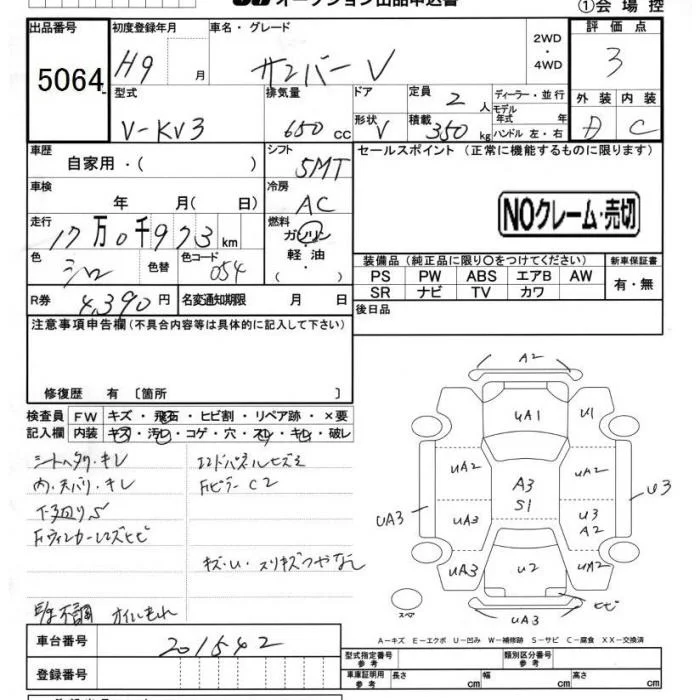 オークション出品申込書
①会場控
出品番号
5064
初度登録年月
H9 月
車名・グレード
サンバーV
2WD
・
4WD
評価点
3
型式
V-KV3
排気量
650 cc
ドア
形状
V
定員
2 人
積載
350 kg
ディーラー・並行
モデル年式 年
ハンドル 左・右
外装
D
内装
C
車歴
自家用・( )
シフト
5MT
セールスポイント (正常に機能するものに限ります)
車検
年 月( 日)
冷房
AC
NOクレーム・売切
走行
17万0千973km
燃料
ガソリン
・
軽油
( )
色
シロ
色替
色コード
054
装備品(純正品に限り○をつけてください)
新車保証書
PS PW ABS エアB AW
SR ナビ TV カワ
有・無
R券
4,390円
名変通知期限 月 日
後日品
注意事項申告欄(不具合内容等は具体的に記入して下さい)
修復歴 有〔箇所 〕
検査員
記入欄
FW キズ・飛石・ヒビ割・リペア跡・×要
内装 キズ・汚レ・コゲ・穴・スレ・キレ・破レ
シートヘタリ・キレ
内・天バリ・キレ
下廻りS
FウィンカーレンズヒビF
エンドパネルヒズミ
FピラーC2
キズ・U・スリキズツヤなし
不調 オイルもれ
A2
UA1
U1
UA2
UA2
A3
S1
U3
UA3
UA3
U3
A2
UA3
U2
UA2
ヒビ
スペア
UA3
A-キズ E-エクボ U-凹み W-補修跡 S-サビ C-腐食 XX-交換済
車台番号
201542
登録番号
型式指定番号
参考
類別区分番号
参考
車庫証明用
参考
長さ cm
幅 cm
高さ cm